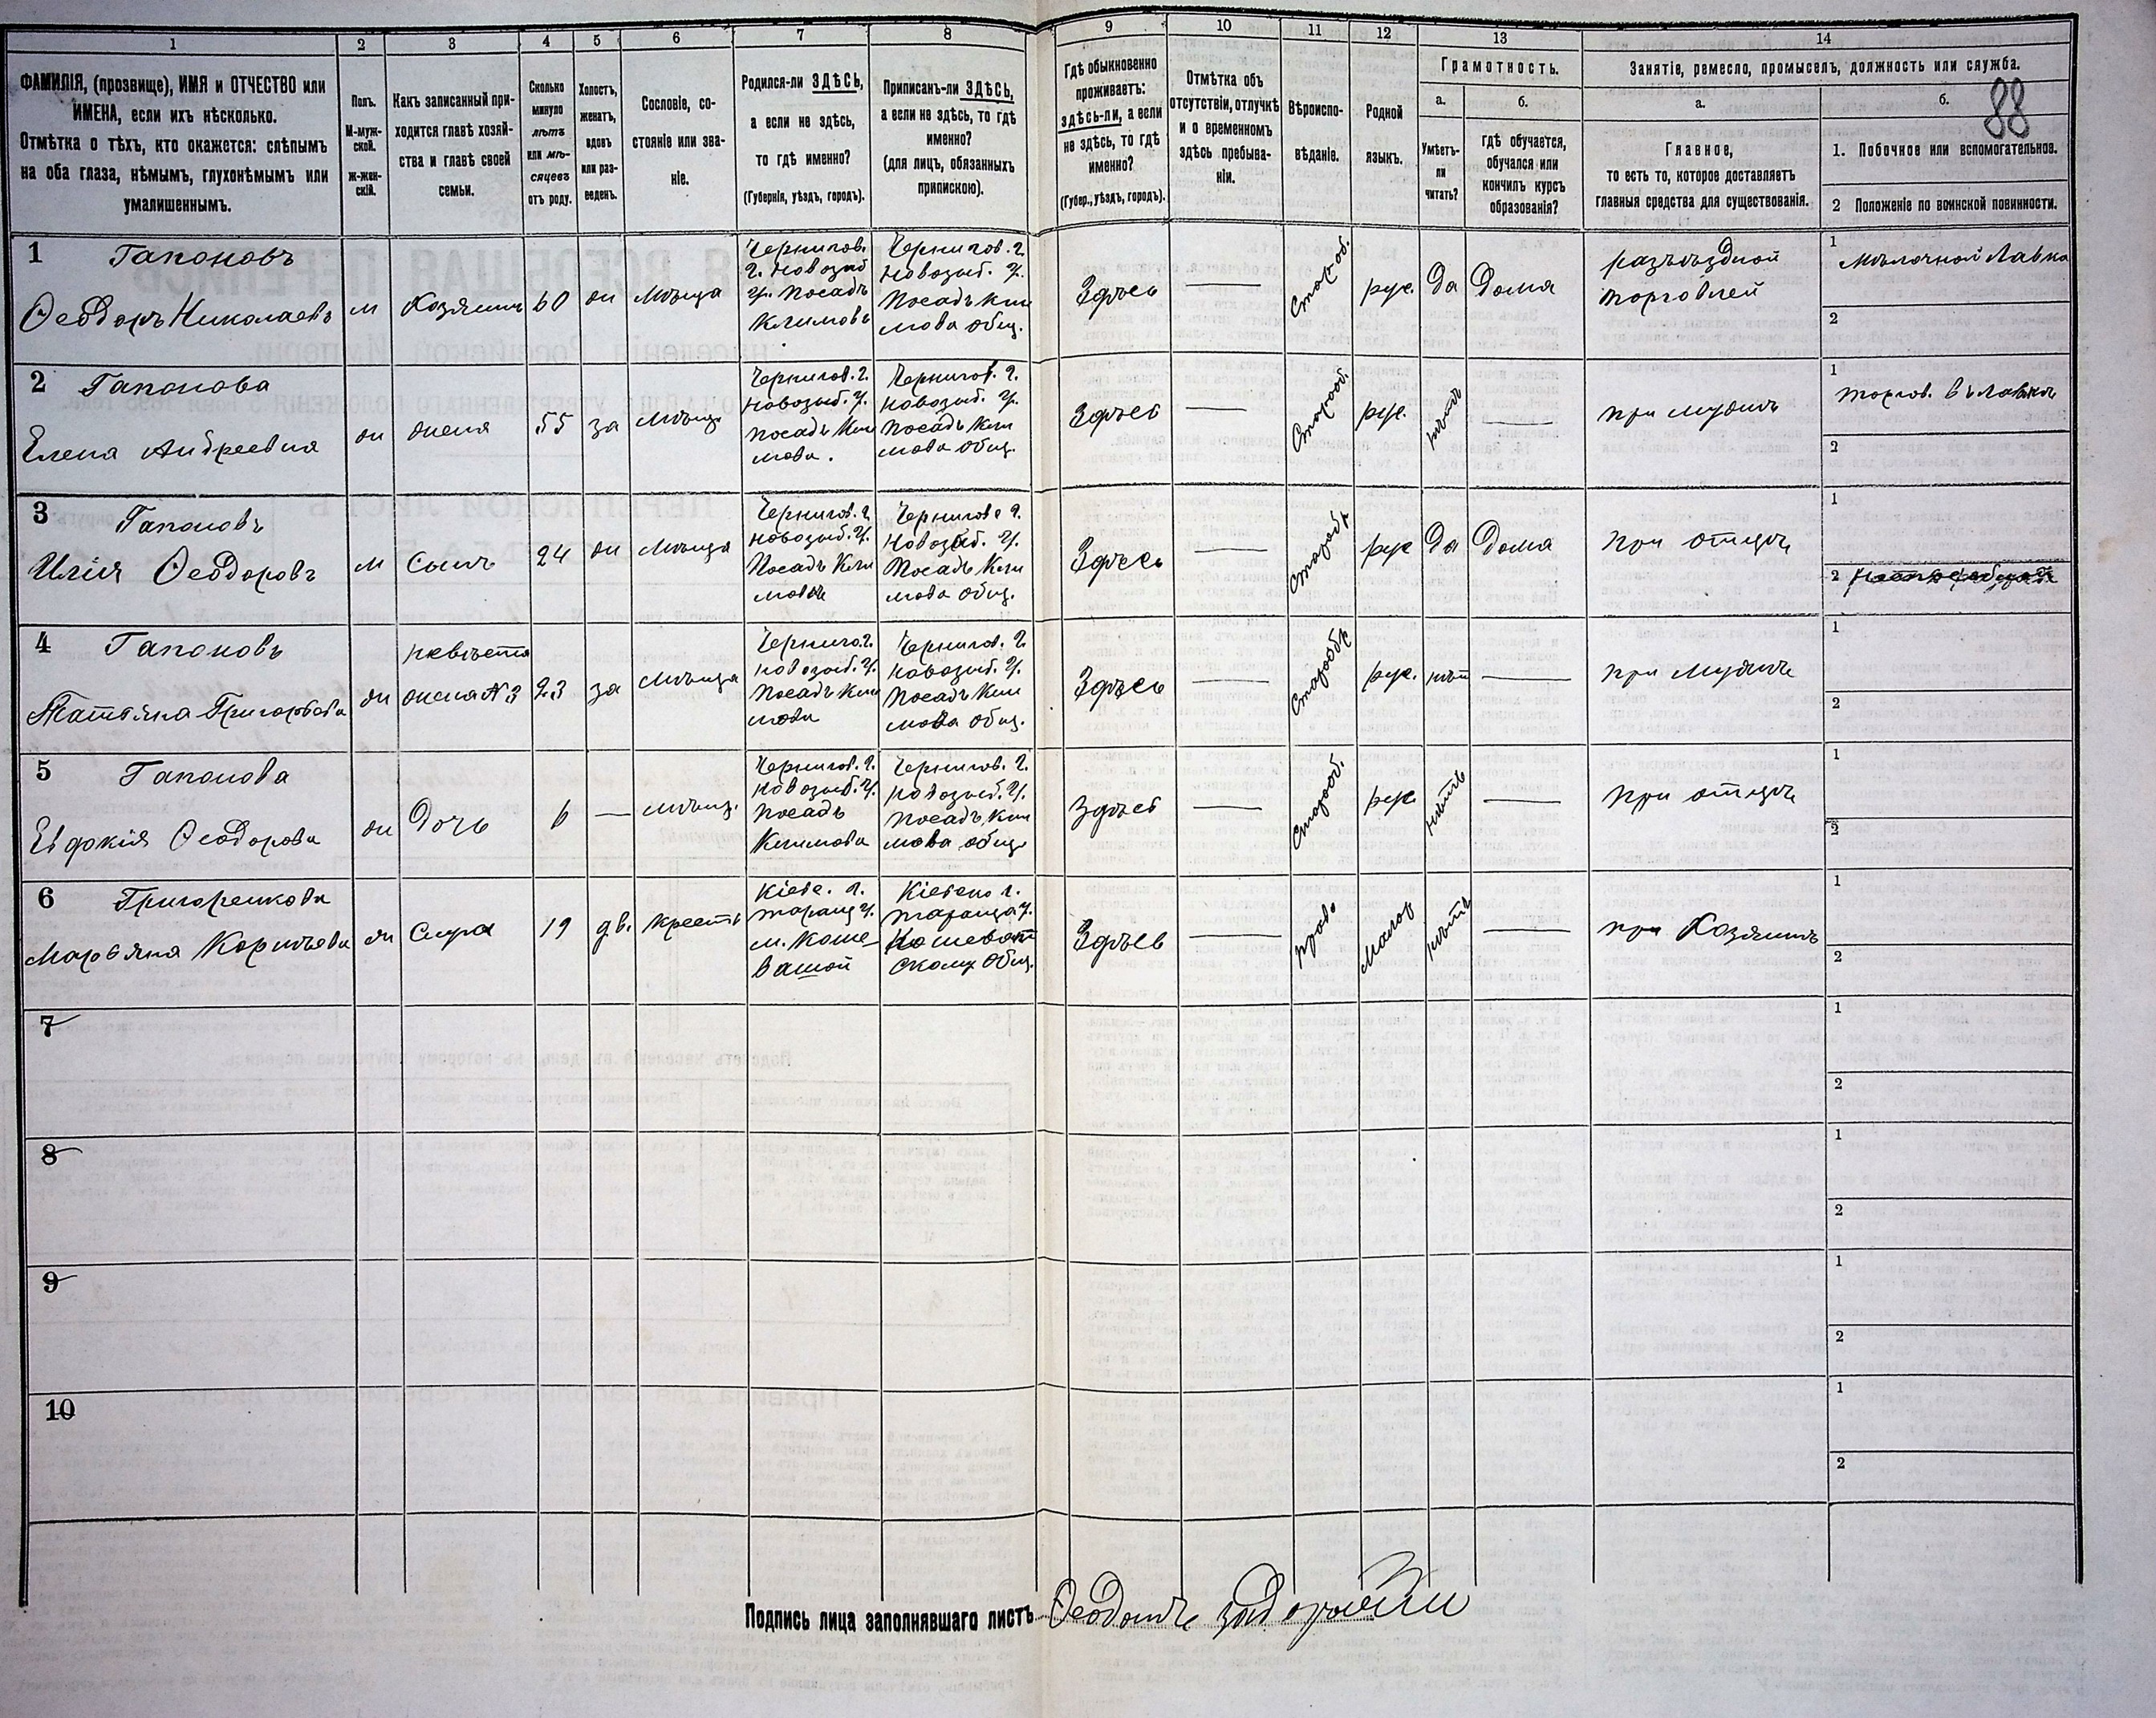 1 2 3 4 5 6 7 8 9 10 11 12 13 14
88
ФАМИЛІЯ, (прозвище), ИМЯ и ОТЧЕСТВО или
ИМЕНА, если ихъ нѣсколько.
Отмѣтка о тѣхъ, кто окажется: слѣпымъ
на оба глаза, нѣмымъ, глухонѣмымъ или
умалишеннымъ.
Полъ.
М-муж-
ской.
ж-жен-
скій.
Какъ записанный при-
ходится главѣ хозяй-
ства и главѣ своей
семьи.
Сколько
минуло
лѣтъ
или мѣ-
сяцевъ
отъ роду.
Холостъ,
женатъ,
вдовъ
или раз-
веденъ.
Сословіе, со-
стояніе или зва-
ніе.
Родился-ли ЗДѢСЬ,
а если не здѣсь,
то гдѣ именно?
(Губернія, уѣздъ, городъ).
Приписанъ-ли ЗДѢСЬ,
а если не здѣсь, то гдѣ
именно?
(для лицъ, обязанныхъ
припискою).
Гдѣ обыкновенно
проживаетъ:
здѣсь-ли, а если
не здѣсь, то гдѣ
именно?
(Губер., уѣздъ, городъ).
Отмѣтка объ
отсутствіи, отлучкѣ
и о временномъ
здѣсь пребыва-
ніи.
Вѣроиспо-
вѣданіе.
Родной
языкъ.
Грамотность.
а.
Умѣетъ-
ли
читать?
б.
гдѣ обучается,
обучался или
кончилъ курсъ
образованія?
Занятіе, ремесло, промыселъ, должность или служба.
а.
Главное,
то есть то, которое доставляетъ
главныя средства для существованія.
б.
1. Побочное или вспомогательное.
2 Положеніе по воинской повинности.
1 Гапоновъ
Ѳеодоръ Николаевъ
м
Хозяинъ
60
жи
Мѣща
Чернигов.
г. Новозыб
у. Посадъ
Климовъ
Чернигов. г.
Новозыб. у.
Посадъ Кли
мова общ.
Здѣсь
—
Старооб.
рус.
да
Дома
разъѣздной
торговлей
1 Мѣлочной Лавка
2
2 Гапонова
Елена Андреевна
жи
жена
55
за
Мѣщ.
Чернигов. г.
Новозыб. у.
посадъ Кли
мова.
Чернигов. г.
Новозыб. у.
Посадъ Кли
мова общ.
Здѣсь
—
Старооб.
рус.
нѣтъ
—
при мужѣ
1 торгов. въ лавкѣ
2
3 Гапоновъ
Илія Ѳеодоровъ
м
Сынъ
24
жи
Мѣща
Чернигов. г.
Новозыб. у.
Посадъ Кли
мова
Чернигов г.
Новозыб. у.
Посадъ Кли
мова общ.
Здѣсь
—
Старообр
рус
да
Дома
при отцѣ
1
2
4 Гапоновъ
Татьяна Григорьева
жи
невѣста
жена N 3
23
за
Мѣща
Черниго. г.
Новозыб. у.
Посадъ Кли
мова
Чернигов. г.
Новозыб. у.
Посадъ Кли
мова общ.
Здѣсь
—
Старообр
рус.
нѣт
—
при Мужѣ
1
2
5 Гапонова
Евдокія Ѳеодорова
жи
Дочь
6
—
мѣщ.
Чернигов. г.
Новозыб. у.
посадъ
Климова
Чернигов. г.
Новозыб. у.
Посадъ Кли
мова общ.
Здѣсь
—
Старооб.
рус
нѣтъ
—
При отцѣ
1
2
6 Григоренкова
Марьяна Корнѣева
жи
19
дѣ.
крест
Кіев. г.
таращ у.
м. Коше
ватой
Кіевско г.
Тараща у.
Кошеват
скому общ.
Здѣсь
—
право
Малор
нѣтъ
—
при Хозяинѣ
1
2
7
1
2
8
1
2
9
1
2
10
1
2
Подпись лица заполнявшаго листъ